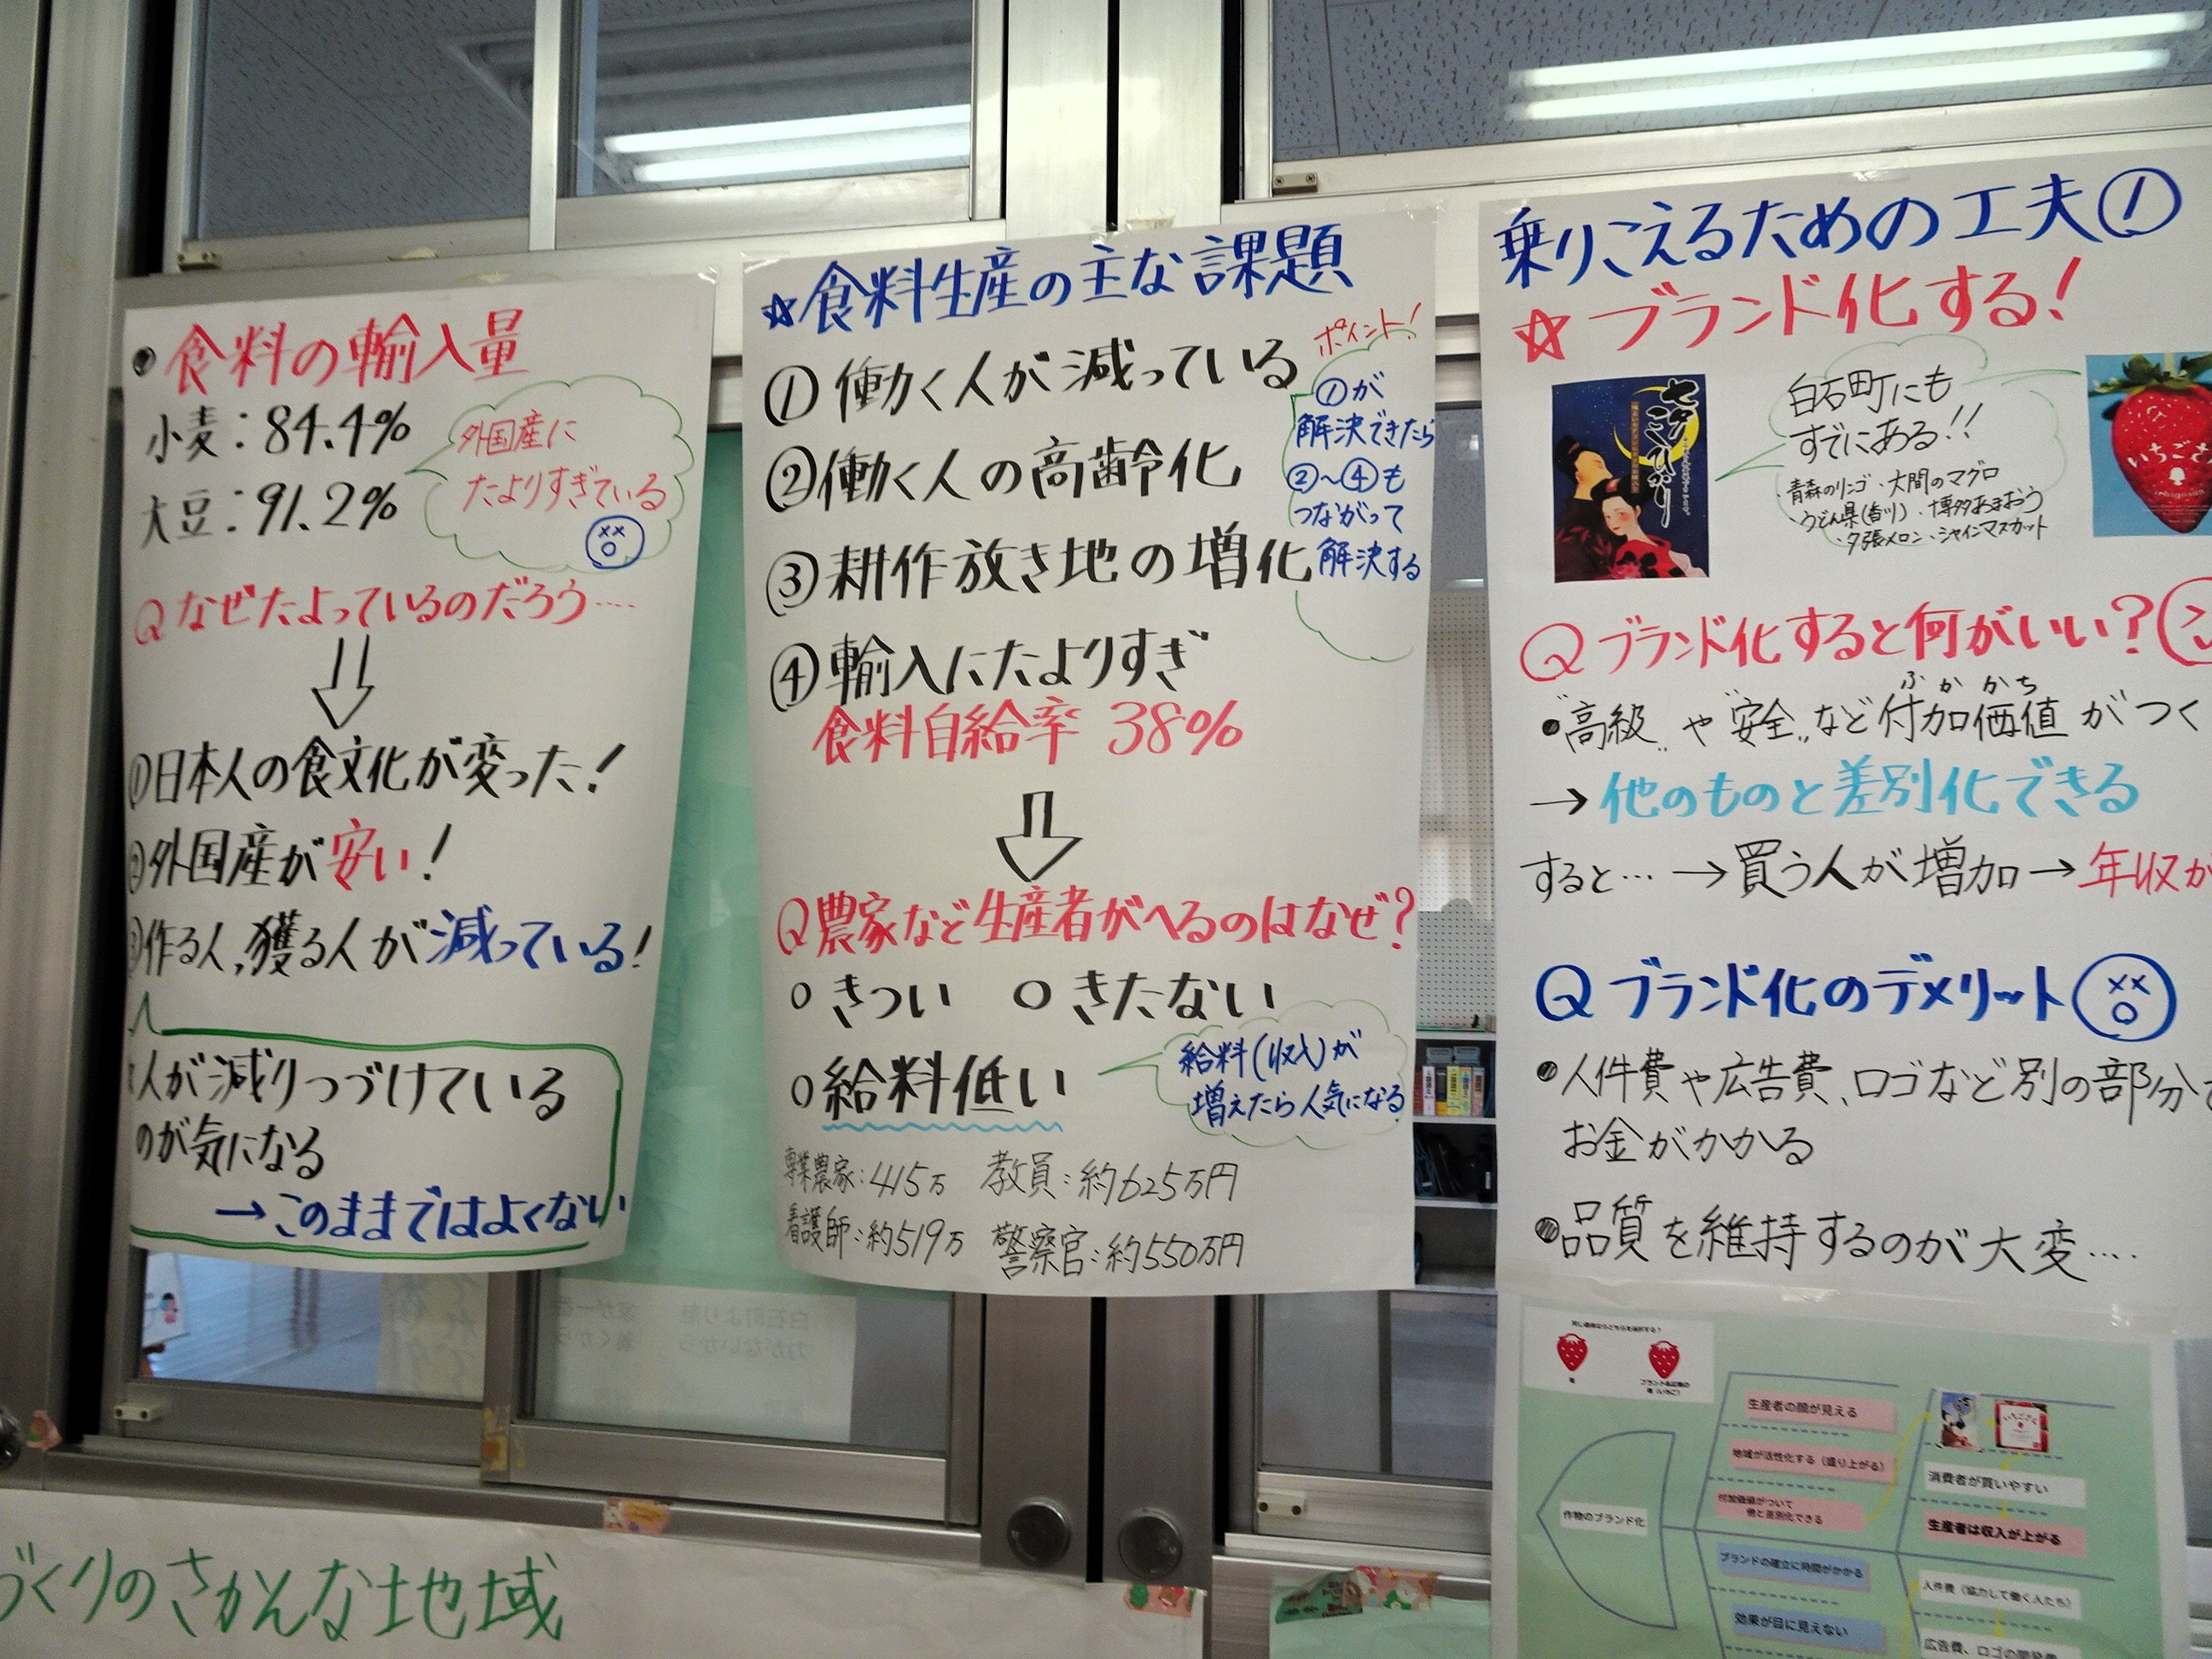 ・食料の輸入量
小麦：84.4%
大豆：91.2%
外国産に
たよりすぎている
Qなぜたよっているのだろう‥‥
①日本人の食文化が変った！
②外国産が安い！
③作る人、獲る人が減っている！
人が減りつづけている
のが気になる
→このままではよくない
☆食料生産の主な課題
①働く人が減っている
②働く人の高齢化
③耕作放き地の増化
④輸入にたよりすぎ
食料自給率 38%
ポイント！
①が
解決できたら
②～④も
つながって
解決する
Q農家など生産者がへるのはなぜ？
○きつい ○きたない
○給料低い
給料(収入)が
増えたら人気になる
専業農家：415万 教員：約625万円
看護師：約519万 警察官：約550万円
乗りこえるための工夫①
☆ブランド化する！
七夕こひかり
白石町にも
すでにある！！
・青森のリンゴ・大間のマグロ
・うどん県(香川)・博多あまおう
・夕張メロン・シャインマスカット
いちごさ
Qブランド化すると何がいい？
ふかかち
・"高級"や"安全"など付加価値がつく
→他のものと差別化できる
すると…→買う人が増加→年収が
Qブランド化のデメリット
・人件費や広告費、ロゴなど別の部分で
お金がかかる
・品質を維持するのが大変‥‥
生産者の顔が見える
地域が活性化する（盛り上がる）
付加価値がついて
他と差別化できる
作物のブランド化
ブランドの確立に時間がかかる
効果が目に見えない
消費者が買いやすい
生産者は収入が上がる
人件費（協力して働く人たち）
広告費、ロゴの
づくりのさかんな地域